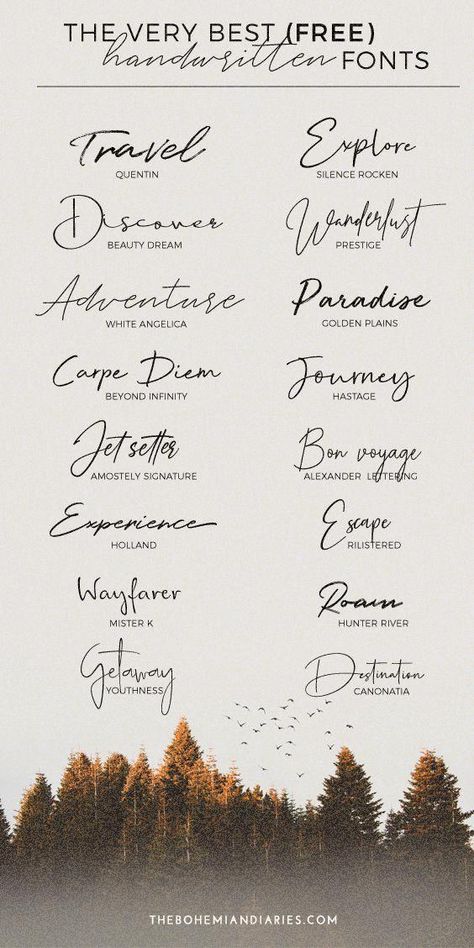 THE VERY BEST (FREE)
handwritten FONTS
Travel
QUENTIN
Explore
SILENCE ROCKEN
Discover
BEAUTY DREAM
Wanderlust
PRESTIGE
Adventure
WHITE ANGELICA
Paradise
GOLDEN PLAINS
Carpe Diem
BEYOND INFINITY
Journey
HASTAGE
Jet setter
AMOSTELY SIGNATURE
Bon voyage
ALEXANDER LETTERING
Experience
HOLLAND
Escape
RILISTERED
Wayfarer
MISTER K
Roam
HUNTER RIVER
Getaway
YOUTHNESS
Destination
CANONATIA
THEBOHEMIANDIARIES.COM